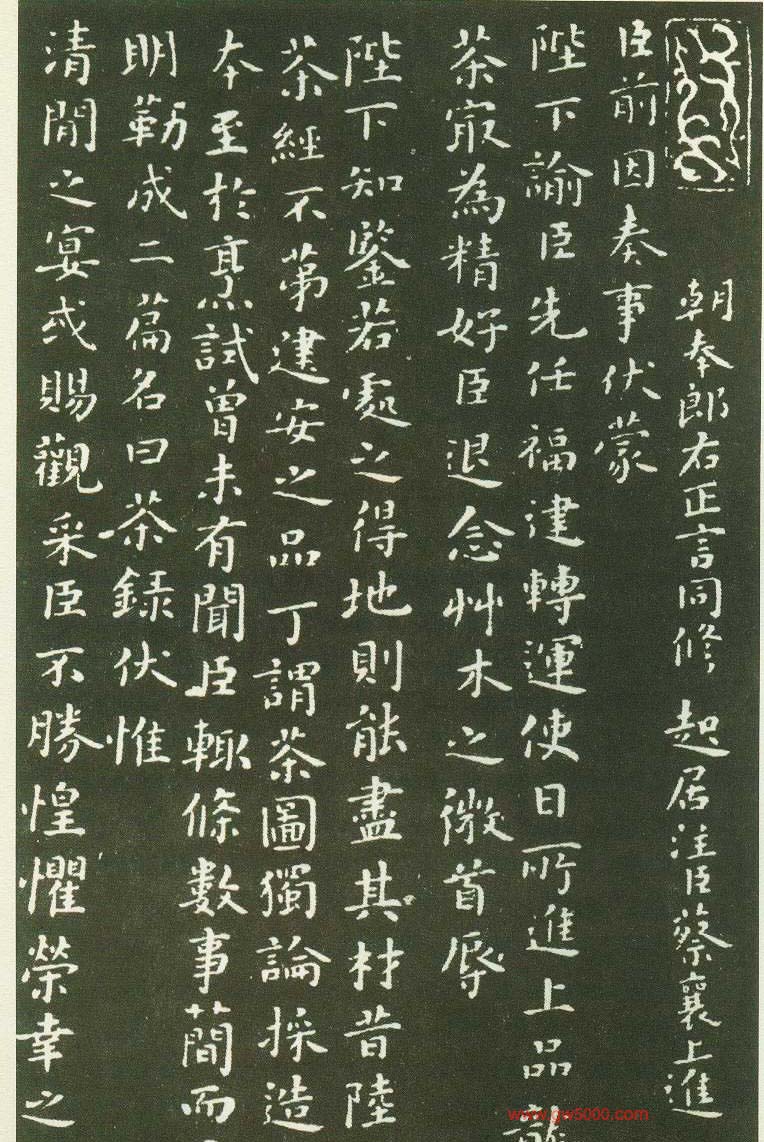 朝奉郎右正言同修起居注臣蔡襄上進
臣前因奏事伏蒙
陛下諭臣先任福建轉運使日所進上品龍
茶冣為精好臣退念艸木之微首辱
陛下知鑒若處之得地則能盡其材昔陸
茶經不苐建安之品丁謂茶圖獨論採造
本至於烹試曾未有聞臣輙條數事簡而
明勒成二篇名曰茶録伏惟
清閒之宴或賜觀采臣不勝惶懼榮幸之
www.gw5000.com